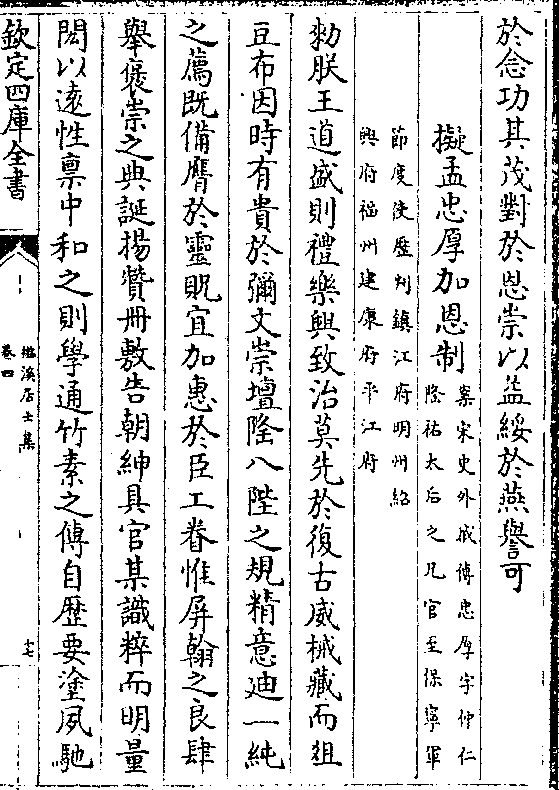 於念功其茂對於恩崇以益綏於燕譽可
擬孟忠厚加恩制
案宋史外戚傳忠厚字仲仁
隆祐太后之兄官至保寧軍
節度使歷判鎮江府明州紹
興府福州建康府平江府
勑朕王道盛則禮樂興致治莫先於復古威械藏而俎
豆布因時有貴於彌文崇壇隆八陛之規精意迪一純
之薦既備膺於靈貺宜加惠於臣工眷惟屏翰之良肆
舉褒崇之典誕揚贊冊敷告朝紳具官某識粹而明量
閎以遠性稟中和之則學通竹素之傳自歷要塗夙馳
欽定四庫全書
溪居士集
卷四